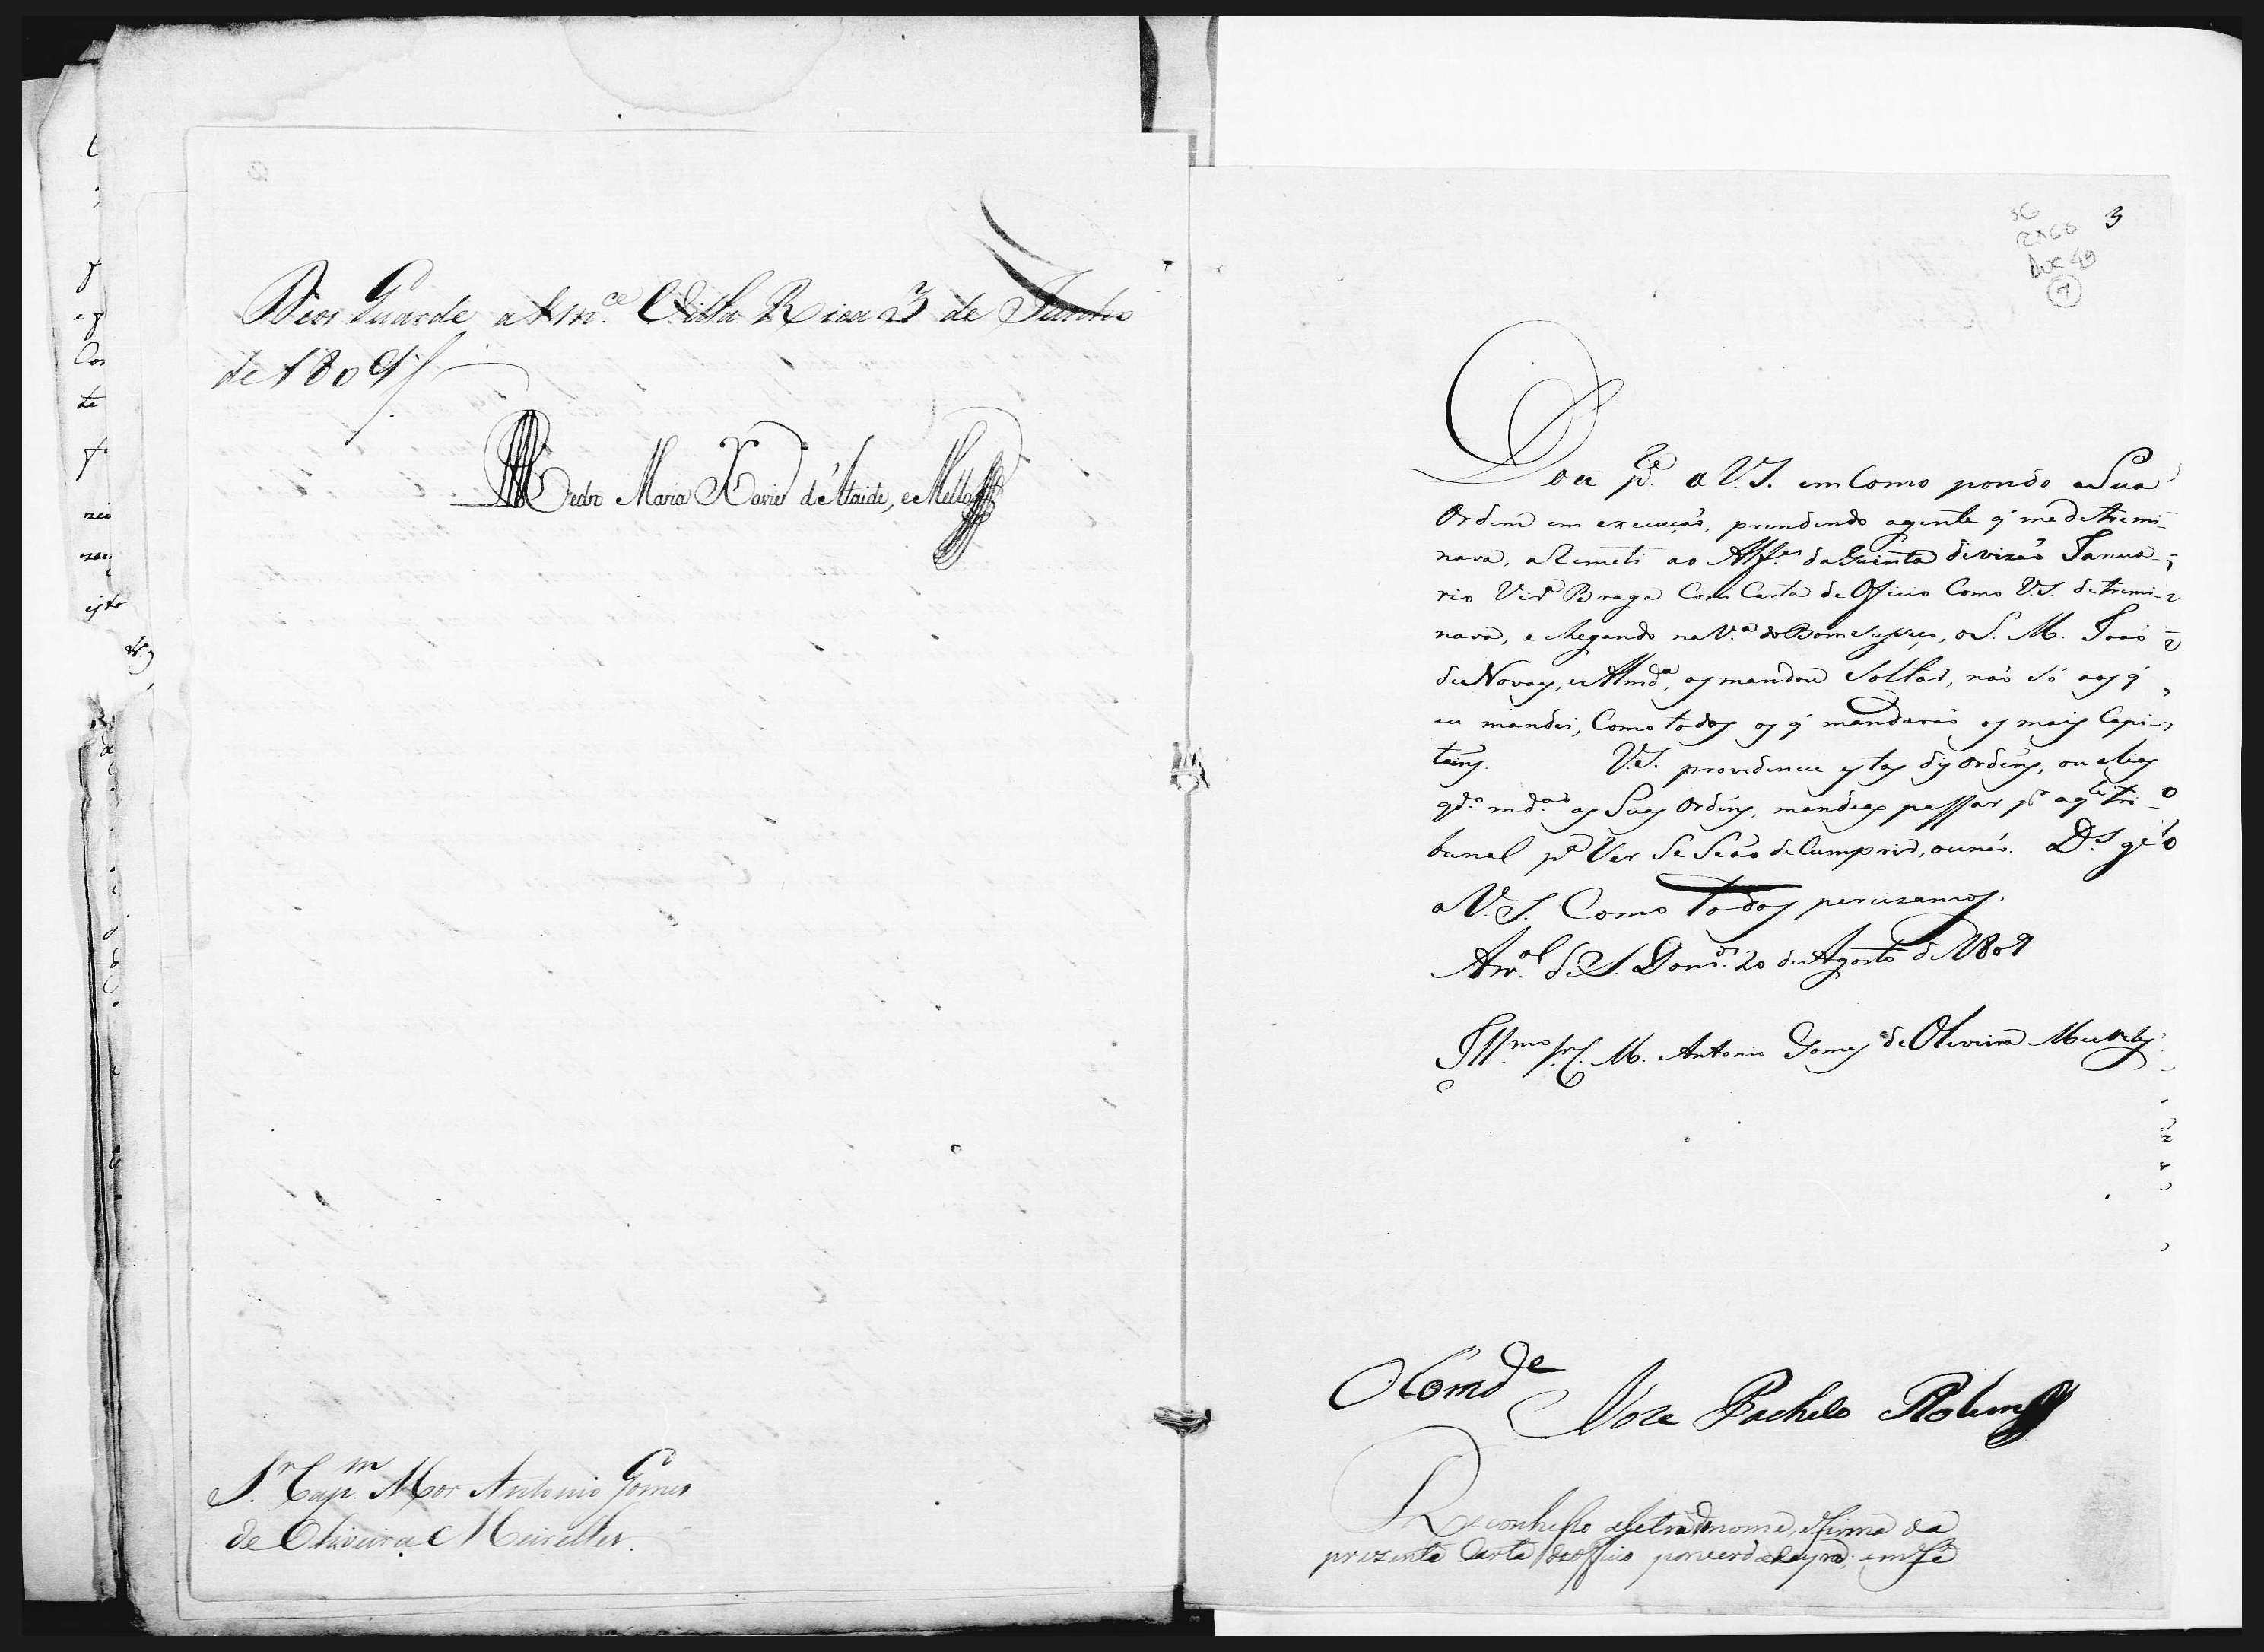 Deos Guarde a Vm.ce Villa Rica 3 de Junho
de 1809
Pedro Maria Xavier d'Ataide, e Mello
S.r Cap.m Mor Antonio Gomes
de Oliveira Meirelles.
3
SG
Doc 49
7
Dou p.te a V.S. em Como pondo a Sua
Ordem em execução, prendendo agente q' me detremi-
nava, a Remeti ao Alf.es da Guinta divizão Janua-
rio Vi.ra Braga Com Carta de Oficio Como V.S. detremi-
nava, e chegando na V.a do Bom Susseço, o S. M. João
de Novaes, e Almd.a, os mandou Soltar, não só aos q'
eu mandei, Como todos os q' mandarão os mais Capi-
taens. V.S. providencie estas disordens, ou alias
qd.o md.ar as Suas Ordens, mandeas passar p.r aq.le tri-
bunal p.a Ver Se Se ão de Cumprir, ou não. D.s g.e
a V.S. Como todos percizamos.
Arr.al de S. Dom.os 20 de Agosto de 1809
Ill.mo Sr. C. M. Antonio Gomes de Oliveira Meirelles
O Comd.e
Joze Pacheco Rolim
Reconhesso a letra do nome, e firma da
prezente Carta de officio por verdadeyra; em fé